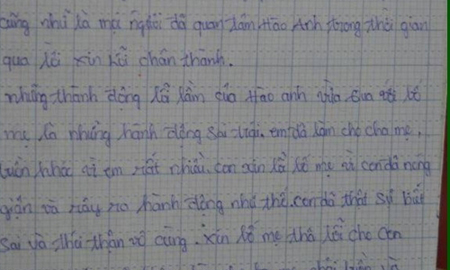 cũng như là mọi người đã quan tâm Hào Anh trong thời gian
qua lời xin lỗi chân thành.
những thành động lỗi lầm của Hào anh vừa qua với bố
mẹ là những hành động sai trái. em đã làm cho cha mẹ,
buồn nhác vì em rất nhiều. con xin lỗ bố mẹ vì con đã nóng
giận và xảy ra hành động như thế. con đã thật sự biết
sai và thái thận vô cùng. xin bố mẹ thà lỗi cho con